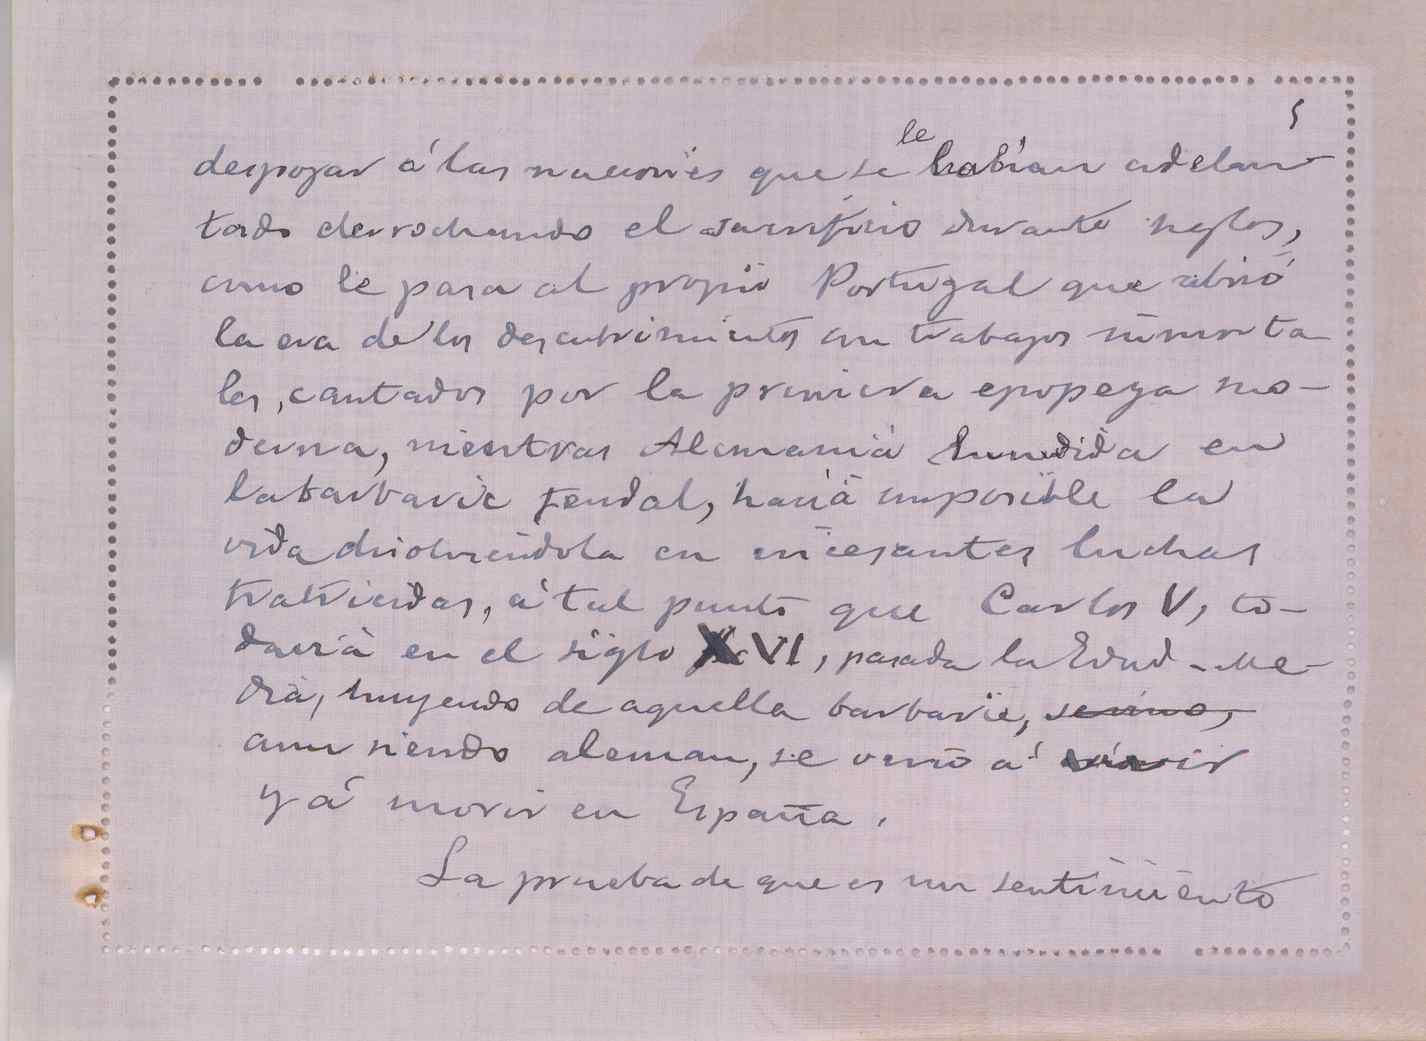 5
le
despojar á las naciones que se habian adelan-
tado derrochando el sacrificio durante siglos,
como le pasa al propio Portugal que abrió
la era de los descubrimientos con trabajos inmorta
les, cantados por la primera epopeya mo-
derna, mientras Alemania hundida en
la barbarie feudal, hacia imposible la
vida disolviendola en incesantes luchas
fratricidas, á tal punto que Carlos V, to-
davia en el siglo XVI, pasada la Edad-Me-
dia, huyendo de aquella barbarie,
aun siendo aleman, se vino á vivir
y á morir en España.
La prueba de que es un sentimiento